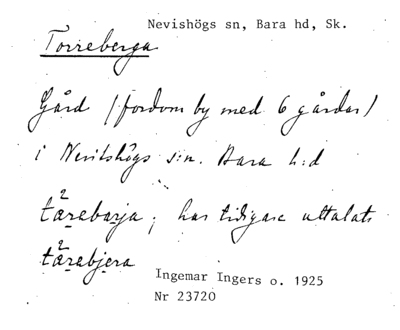 Nevishögs sn, Bara hd, Sk.
Torreberga
Gård (fordom by med 6 gårdar)
i Nevitshögs s:n. Bara h:d
2
tærebarja; har tidigare uttalats
2
tærebjera
Ingemar Ingers o. 1925
Nr 23720